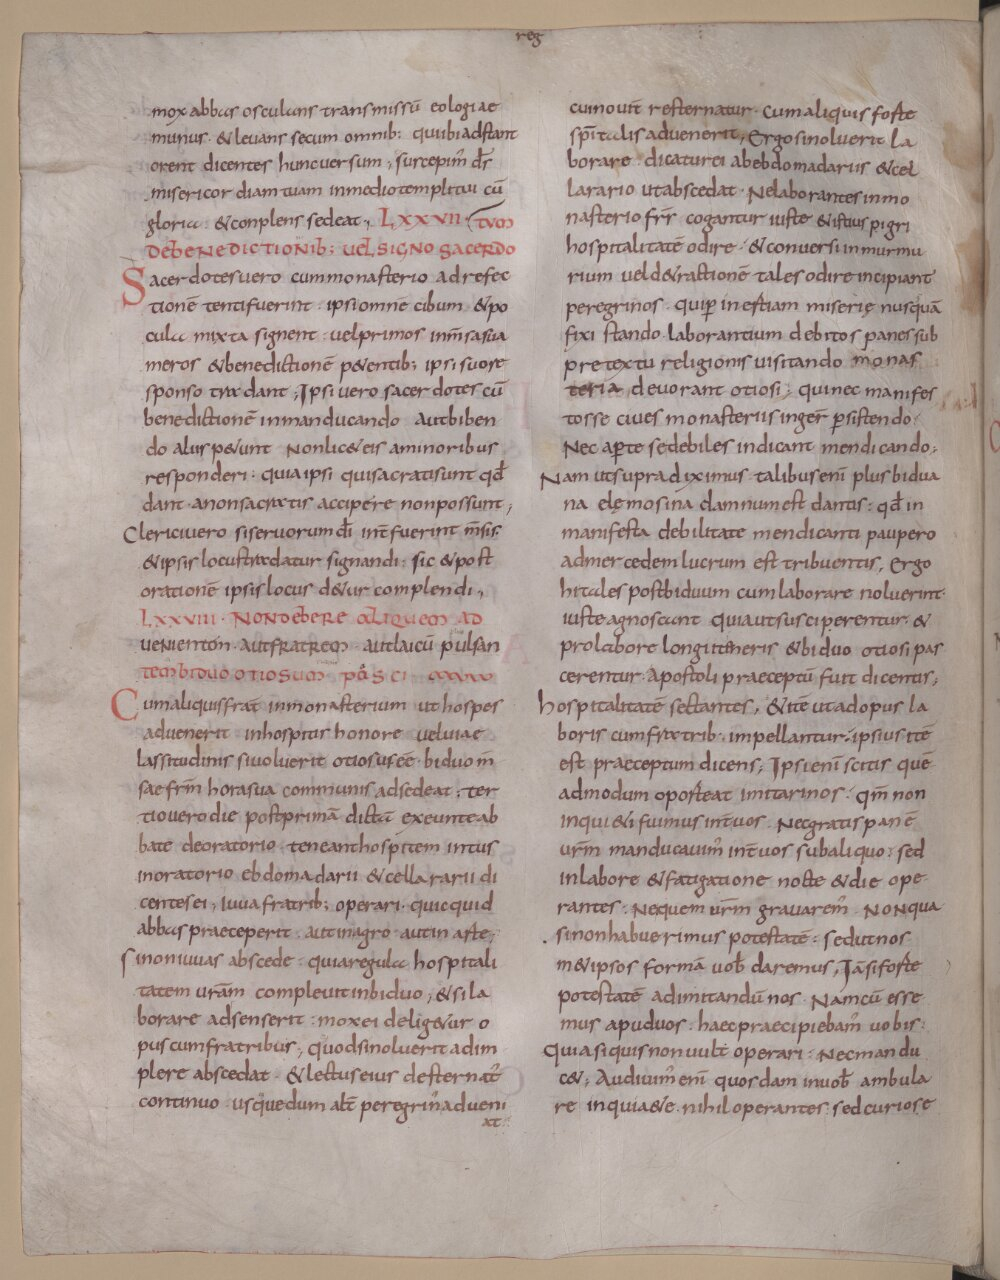 reg
mox abbas osculans transmissū eologiae
munus · & levans secum omnib; qui ibi adstant
orent dicentes hunc versum ; suscepim̄ d̄s
misericordiam tuam in medio templi tui cū
gloria · & conplens sedeat ; LXXVII · tum
de benedictionib; vel signo sacerdo
Sacerdotes vero cum monasterio ad refec
tionē tenti fuerint · ipsi omnē cibum · & po
cula mixta signent · vel primos in m̄sa sua
meros · & benedictionē p&entib; ipsi suo re
sponso tradant ; Ipsi vero sacerdotes cū
benedictionē in manducando aut biben
do aliis p&unt Non lic& eis a minoribus
responderi · quia ipsi qui sacrati sunt qd̄
dant · a non sacratis accipere non possunt ;
Clerici vero si servorum dī int̄ fuerint m̄sis·
& ipsis locus tradatur signandi : sic & post
orationē ipsis locus d&ur complendi ;
LXXVIII · Non debere aliquem ad
venientem · aut fratrem · aut laicū pulsan
tem biduo otiosum pasci
Cum aliquis frat̄ in monasterium ut hospes
advenerit · in hospitis honore vel viae
lassitudinis si voluerit otiosus ēē · biduo m̄
sae frm̄ hora sua communis adsedeat ; ter
tio vero die post primā dictā exeunte ab
bate de oratorio · teneant hospitem intus
in oratorio ebdomadarii & cellararii di
centes ei , iuva fratrib; operari · quicquid
abbas praeceperit · aut in agro · aut in arte ;
Si non iuvas abscede · quia regula hospitali
tatem vram̄ complevit in biduo ; & si la
borare adsenserit · mox ei delig&ur o
pus cum fratribus ; Quod si noluerit adim
plere abscedat · & lectus eius desternat̄
continuo · usquedum alt̄ peregrin̄ adveni
at :
cui novit̄ resternatur · Cum aliquis forte
spīrtalis advenerit ; Ergo si noluerit la
borare · dicatur ei ab ebdomadariis & cel
larario ut abscedat · Ne laborantes in mo
nasterio frr̄ cogantur iuste & istius pigri
hospitalitatē odire · & conversi in murmu
rium vel d&ractionē tales odire incipiant
peregrinos · qui p̄ inertiam miserię nusquā
fixi stando · laborantium debitos panes sub
pretextu religionis visitando monas
teria devorant otiosi ; qui nec manifes
to sse cives monasteriis inger̄ p̄sistendo ·
Nec aperte se debiles indicant mendicando ;
Nam ut supra diximus · talibus enī plus bidua
na elęmosina damnum est dantis : qd̄ in
manifesta debilitate mendicanti paupero
ad mercedem lucrum est tribuentis , Ergo
hi tales post biduum cum laborare noluerint
iuste agnoscunt quia ut susciperentur · &
pro labore longi itineris & biduo otiosi pas
cerentur · Apostoli praeceptū fuit dicentis ;
hospitalitatē sectantes ; & itē ut ad opus la
boris cum fratrib · impellantur · ipsius itē
est praeceptum dicens ; Ipsi enī scitis quē
admodum oporteat imitari nos · qm̄ non
inqui&i fuimus int̄ vos · Nec gratis panē
vrm̄ manducavim̄ int̄ vos sub aliquo : sed
in labore & fatigatione nocte & die ope
rantes · Ne quem vrm̄ gravarem̄ · Non qua
si non habuerimus potestatē : sed ut nos
m&ipsos formā vob̄ daremus ; Iā si forte
potestatē ad imitandū nos · Nam cū esse
mus apud vos · haec praecipiebam̄ vobis :
Quia si quis non vult operari : Nec mandu
c& ; Audivim̄ enī quosdam in vob̄ ambula
re inqui&e · nihil operantes : sed curiose